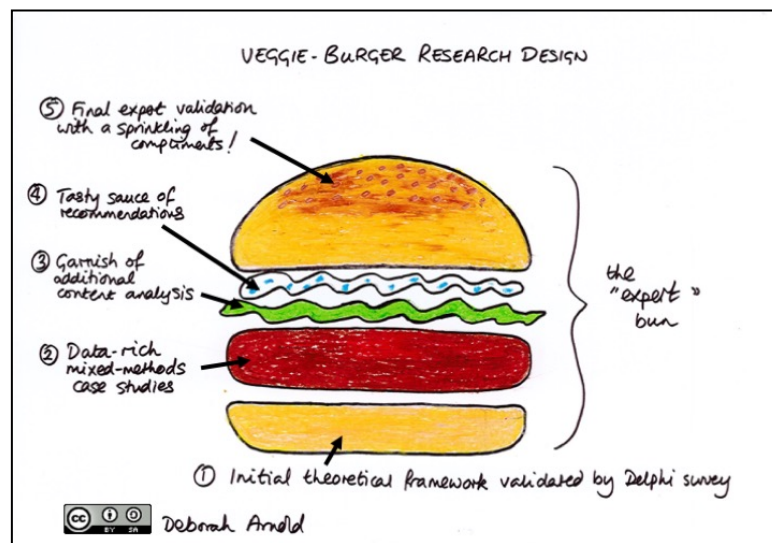 VEGGIE-BURGER RESEARCH DESIGN
⑤ Final expert validation
with a sprinkling of
compliments!
④ Tasty sauce of
recommendations
③ Garnish of
additional
content analysis
② Data-rich
mixed-methods
case studies
the
"expert"
bun
① Initial theoretical framework validated by Delphi survey
cc
BY SA
Deborah Arnold